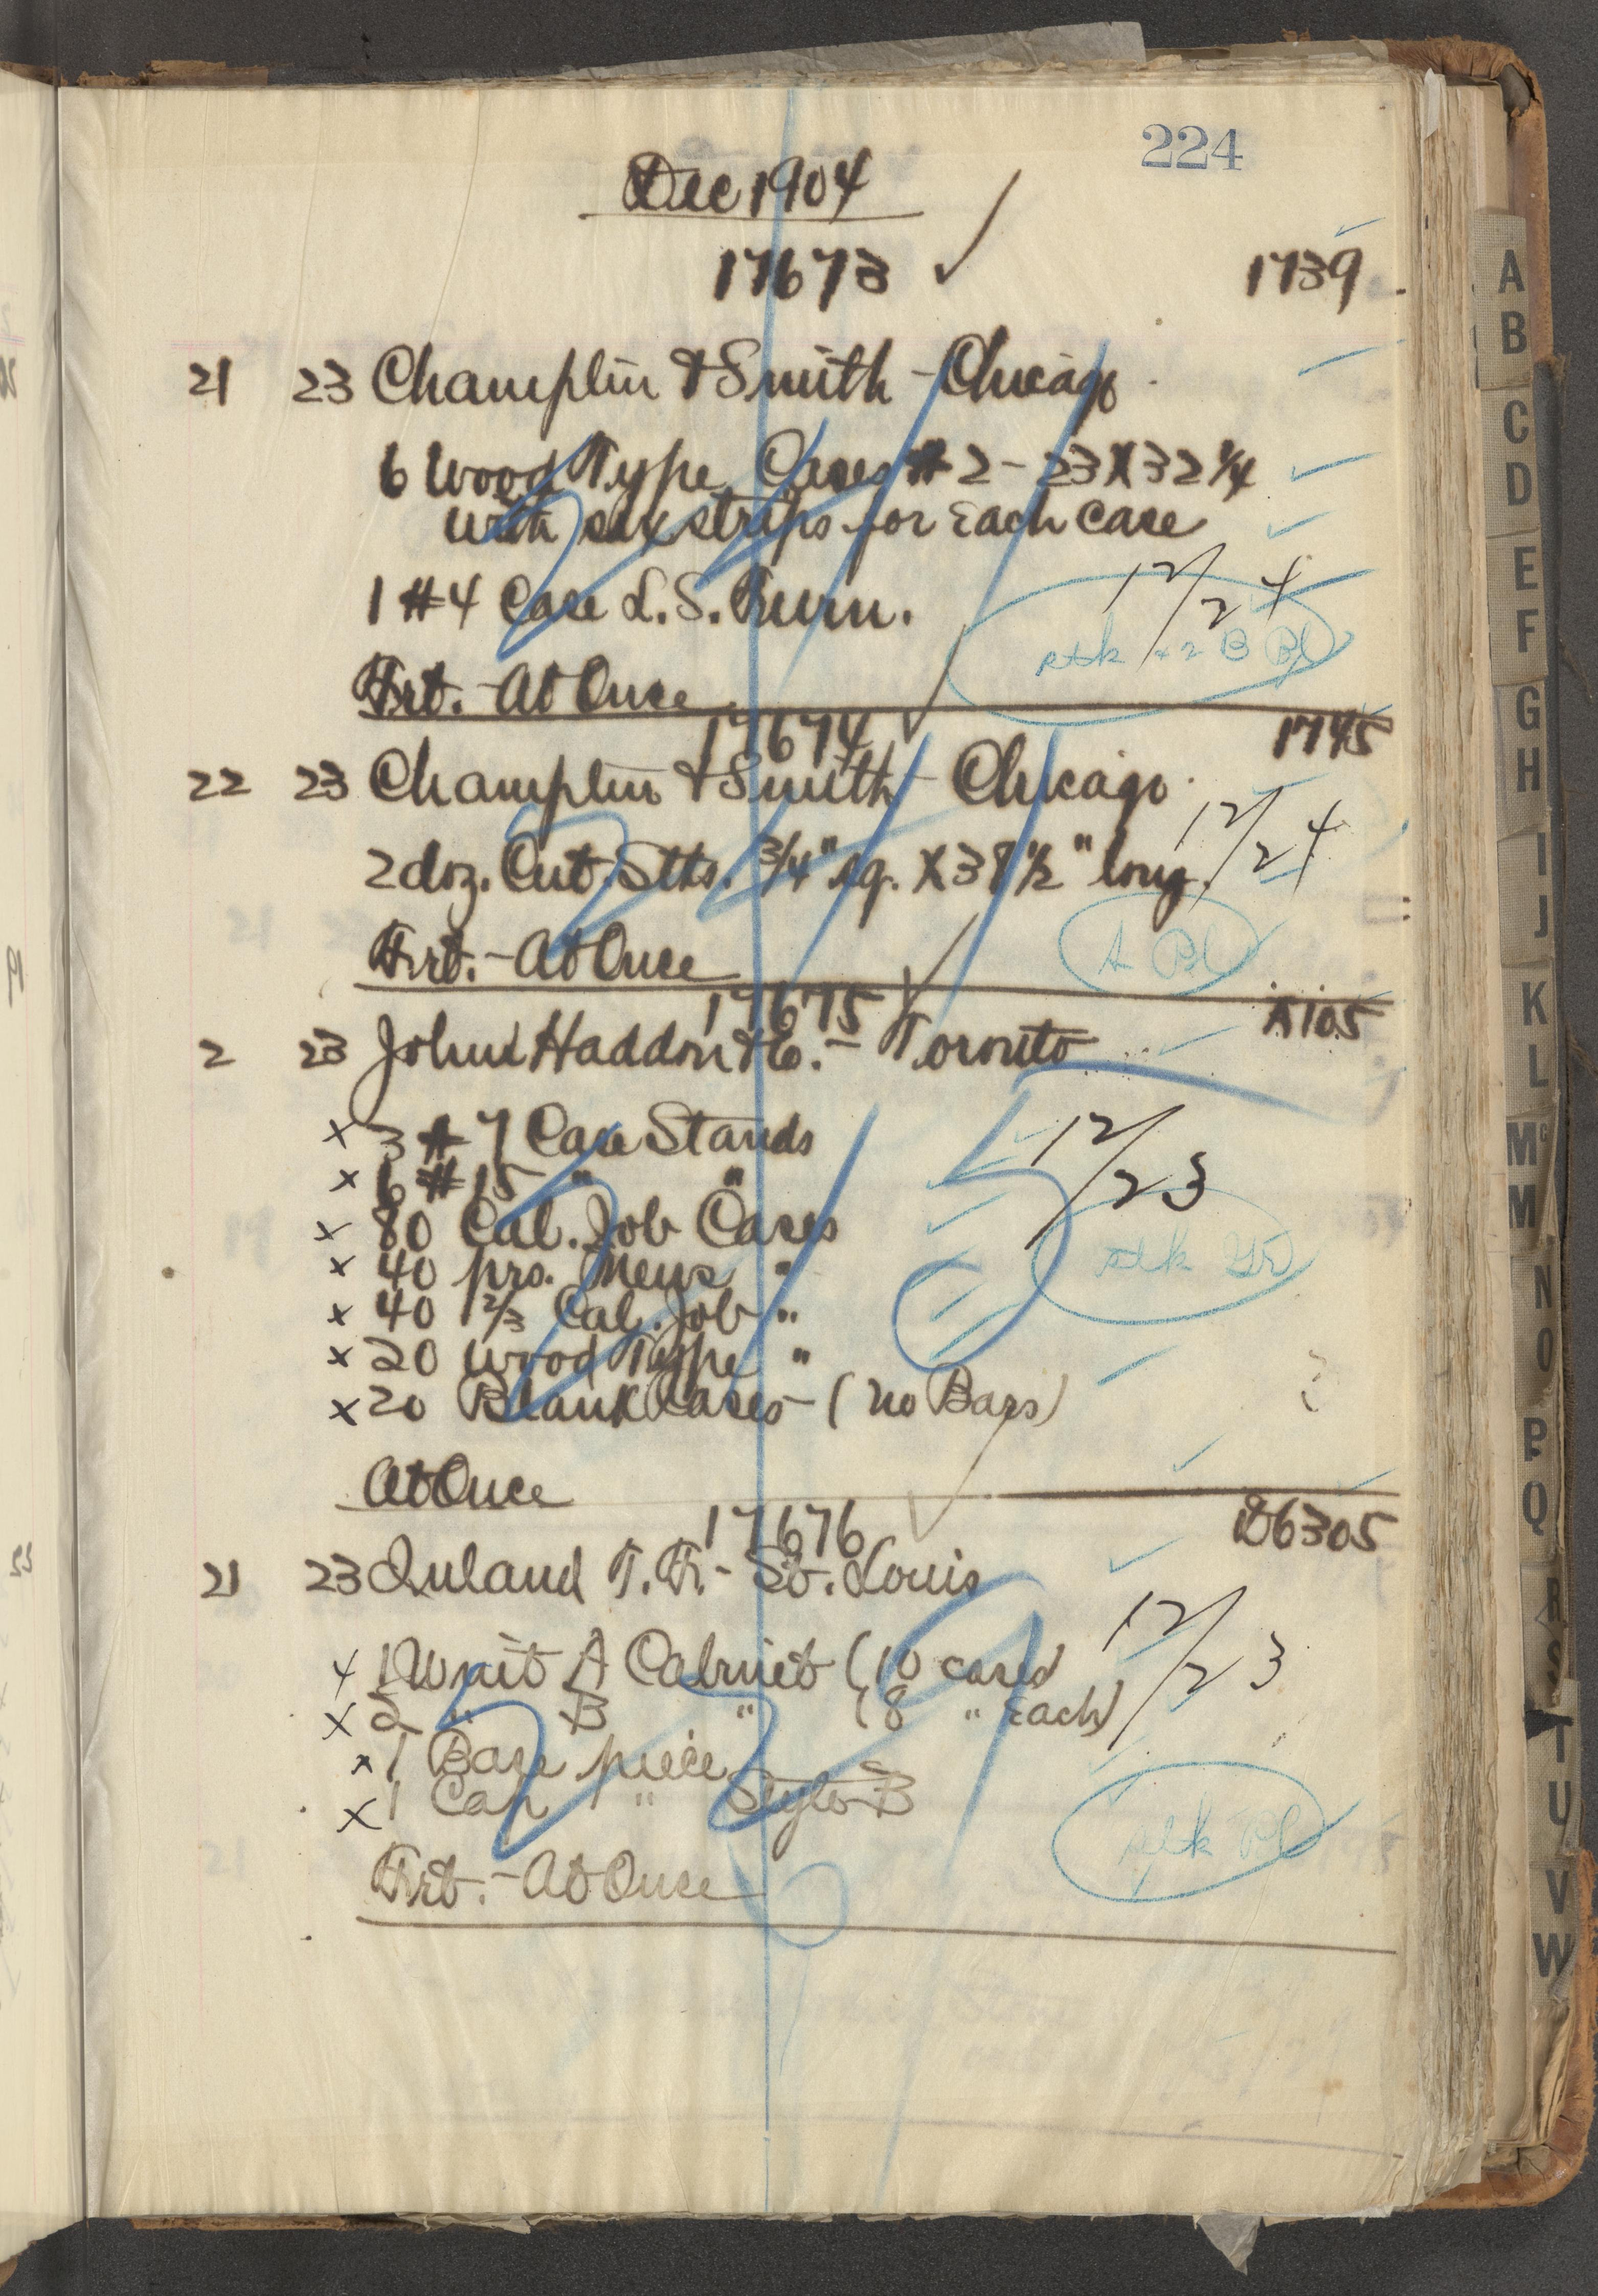 224
Dec 1904
17673 1739
21 23 Champlin & Smith - Chicago
6 Wood Type Cases #2 - 23 X 32 1/4
with six strips for Each Case
1 #4 Case L. S. Furn.
12/24
stk + 2 B Pl
Frt. - At Once
17674 1745
22 23 Champlin & Smith - Chicago
12/24
2 doz. Cut. Stks. 3/4" sq. X 38 1/2" long.
A Pl
Frt. - At Once
17675 A105
2 23 John Haddon & Co. - Toronto
x 3 # 7 Case Stands
12/23
x 6 # 15 " "
x 80 Cal. Job Cases
x 40 prs. News "
stk Yr
x 40 2/3 Cal. Job "
x 20 Wood Type "
x 20 Blank Cases - (no Bars)
At Once
17676 D6305
21 23 Inland T. F. - St. Louis
12/23
x 1 Unit A Cabinet (10 cases
x 2 " B " (8 " Each)
x 1 Base piece
x 1 Cap " Style B
stk Pl
Frt. - At Once
A
B
C
D
E
F
G
H
I
J
K
L
Mc
M
N
O
P
Q
R
S
T
U
V
W